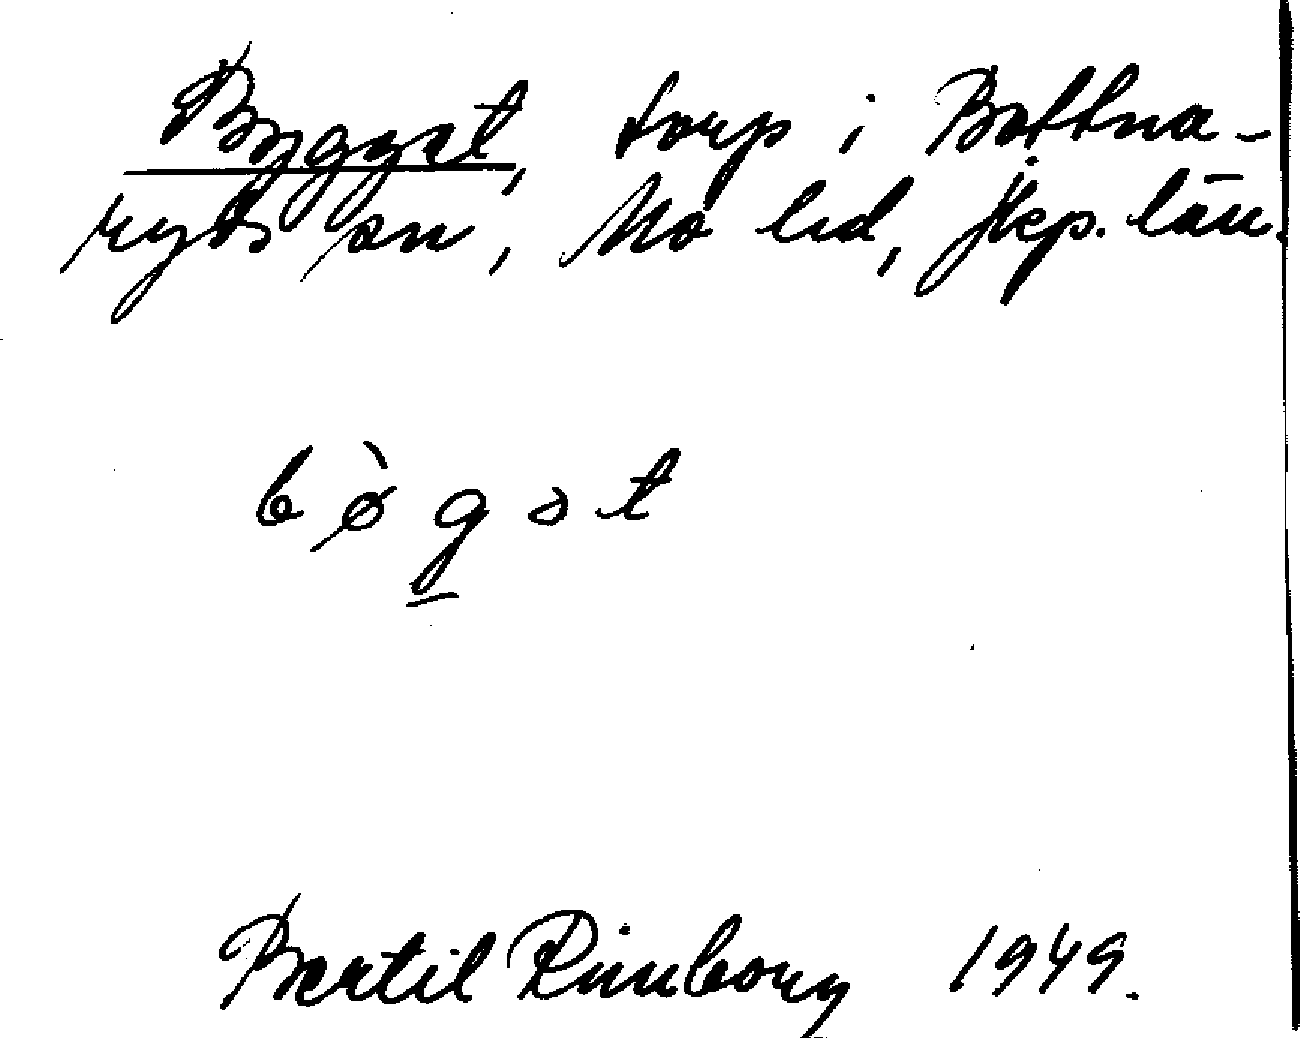 Bygget, torp i Bottna-
ryds sn, Mo hd, Jkp. län.
b ø̀ g ə t
Bertil Rimborg 1949.